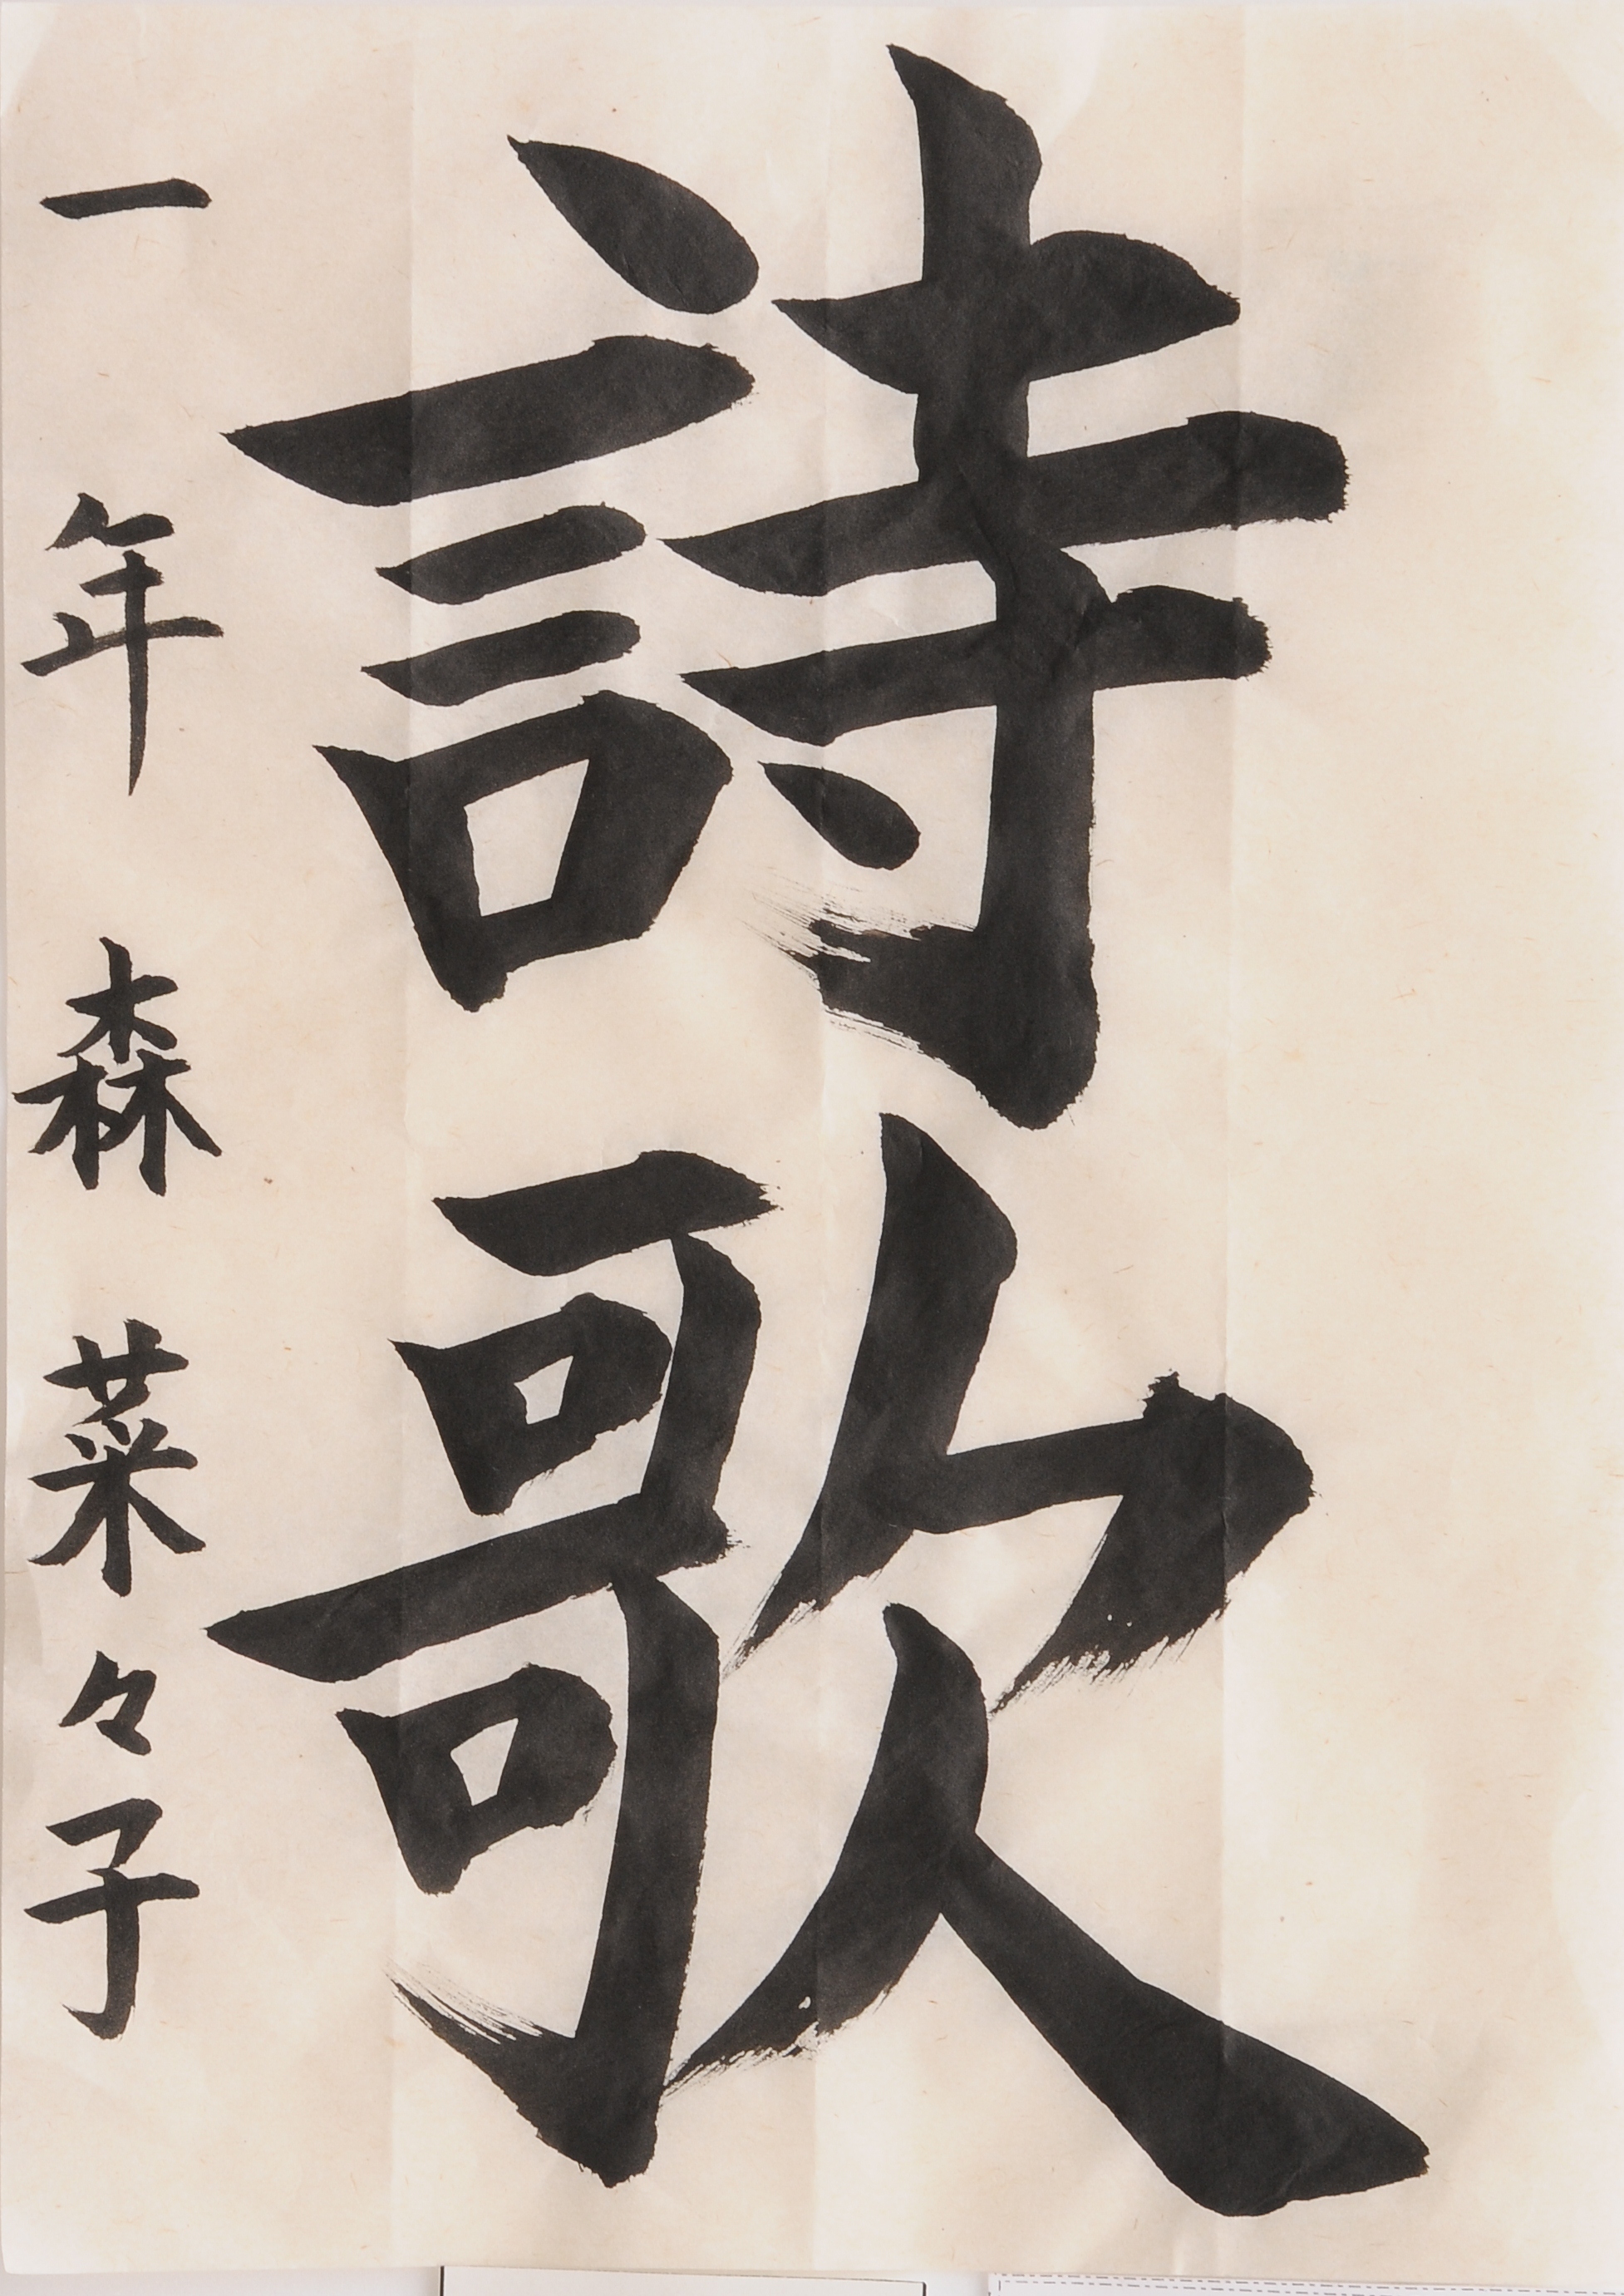 詩歌
一年 森菜々子